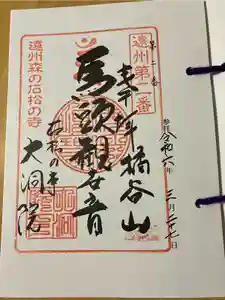 遠州第二番
第二番
奉拝
橘谷山
馬頭観世音
石松の寺
大洞院
遠州森の石松の寺
参拝 令和六年 三月二十七日